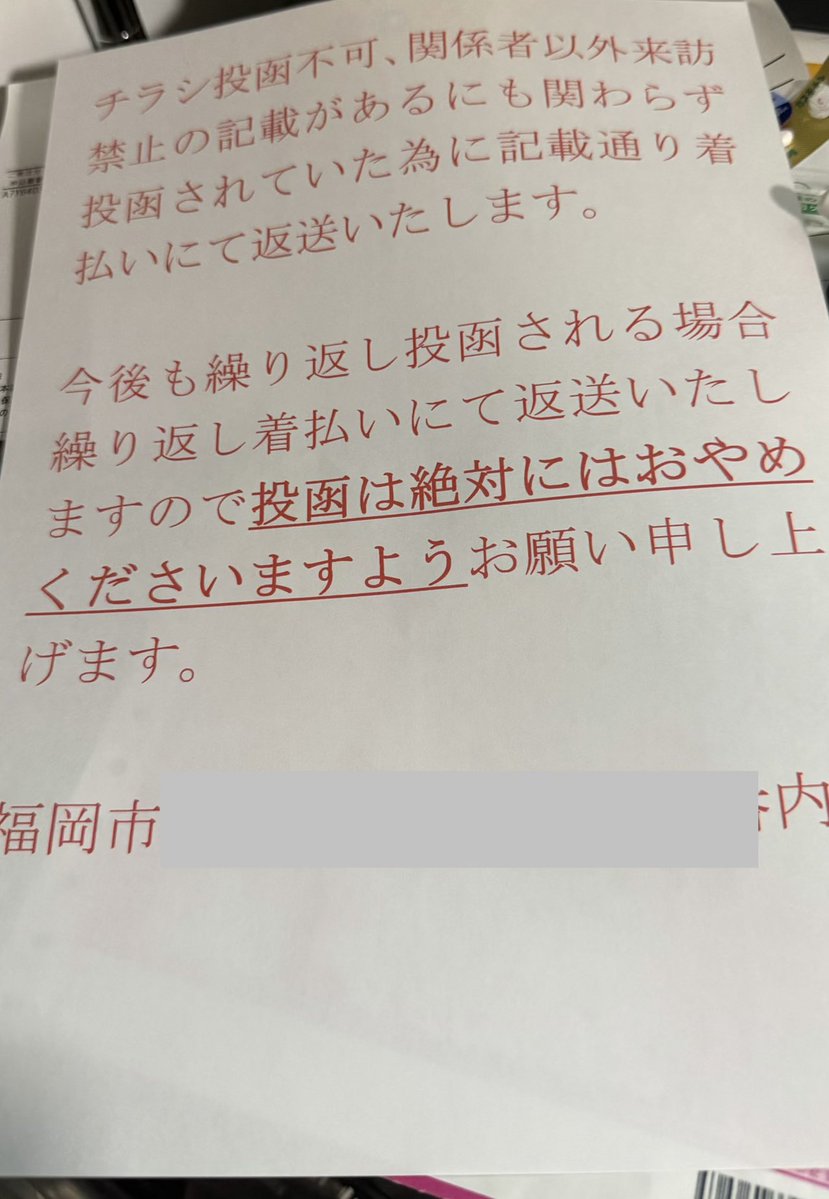 チラシ投函不可、関係者以外来訪
禁止の記載があるにも関わらず
投函されていた為に記載通り着
払いにて返送いたします。
今後も繰り返し投函される場合
繰り返し着払いにて返送いたし
ますので投函は絶対にはおやめ
くださいますようお願い申し上
げます。
福岡市
内